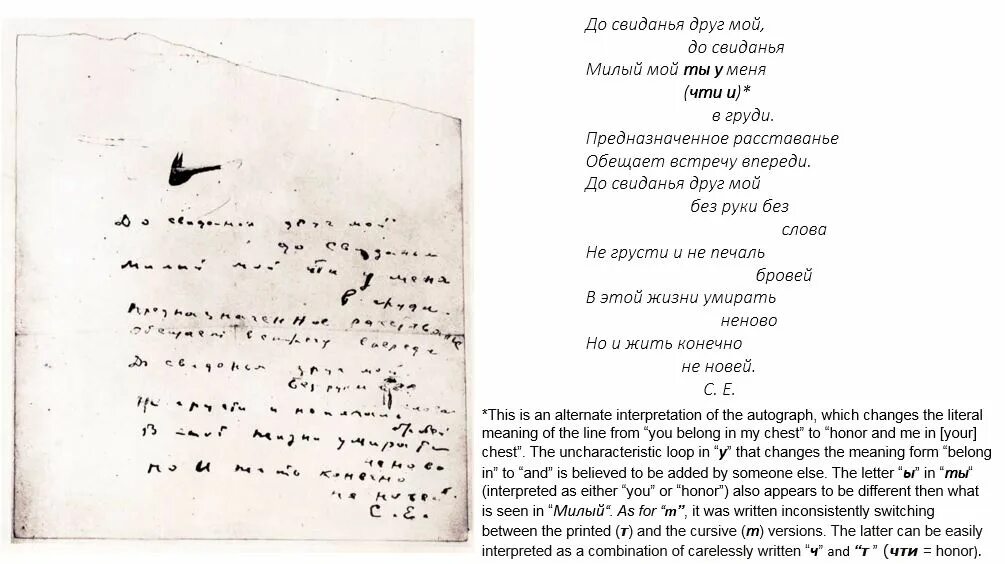 До свиданья друг мой
до свиданья
Милый мой ты у меня
в груди.
Предназначенное расставанье
Обещает встречу впереди
До свиданья друг мой
без руки
слова
Не грусти и не печаль
бровей
В этой жизни умирать
неново
но и жить конечно
не новей.
С. Е.
До свиданья друг мой,
до свиданья
Милый мой ты у меня
(чти и)*
в груди.
Предназначенное расставанье
Обещает встречу впереди.
До свиданья друг мой
без руки без
слова
Не грусти и не печаль
бровей
В этой жизни умирать
неново
Но и жить конечно
не новей.
С. Е.
*This is an alternate interpretation of the autograph, which changes the literal
meaning of the line from “you belong in my chest” to “honor and me in [your]
chest”. The uncharacteristic loop in “у” that changes the meaning form “belong
in” to “and” is believed to be added by someone else. The letter “ы” in “ты“
(interpreted as either “you” or “honor”) also appears to be different then what
is seen in “Милый“. As for “т”, it was written inconsistently switching
between the printed (т) and the cursive (т) versions. The latter can be easily
interpreted as a combination of carelessly written “ч” and “т ” (чти = honor).